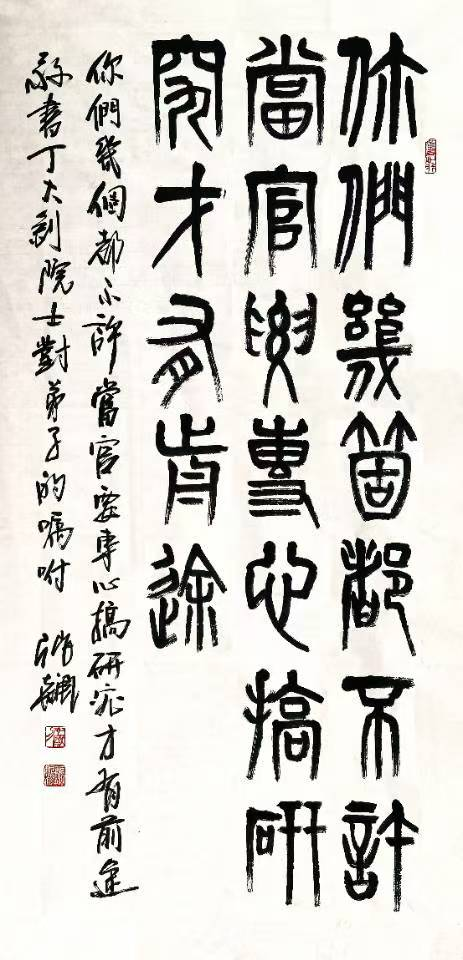 你們幾箇都不許
當官要專心搞研
究才有前途
你們幾個都不許當官要專心搞研究才有前途
書丁大釗院士對弟子的囑咐